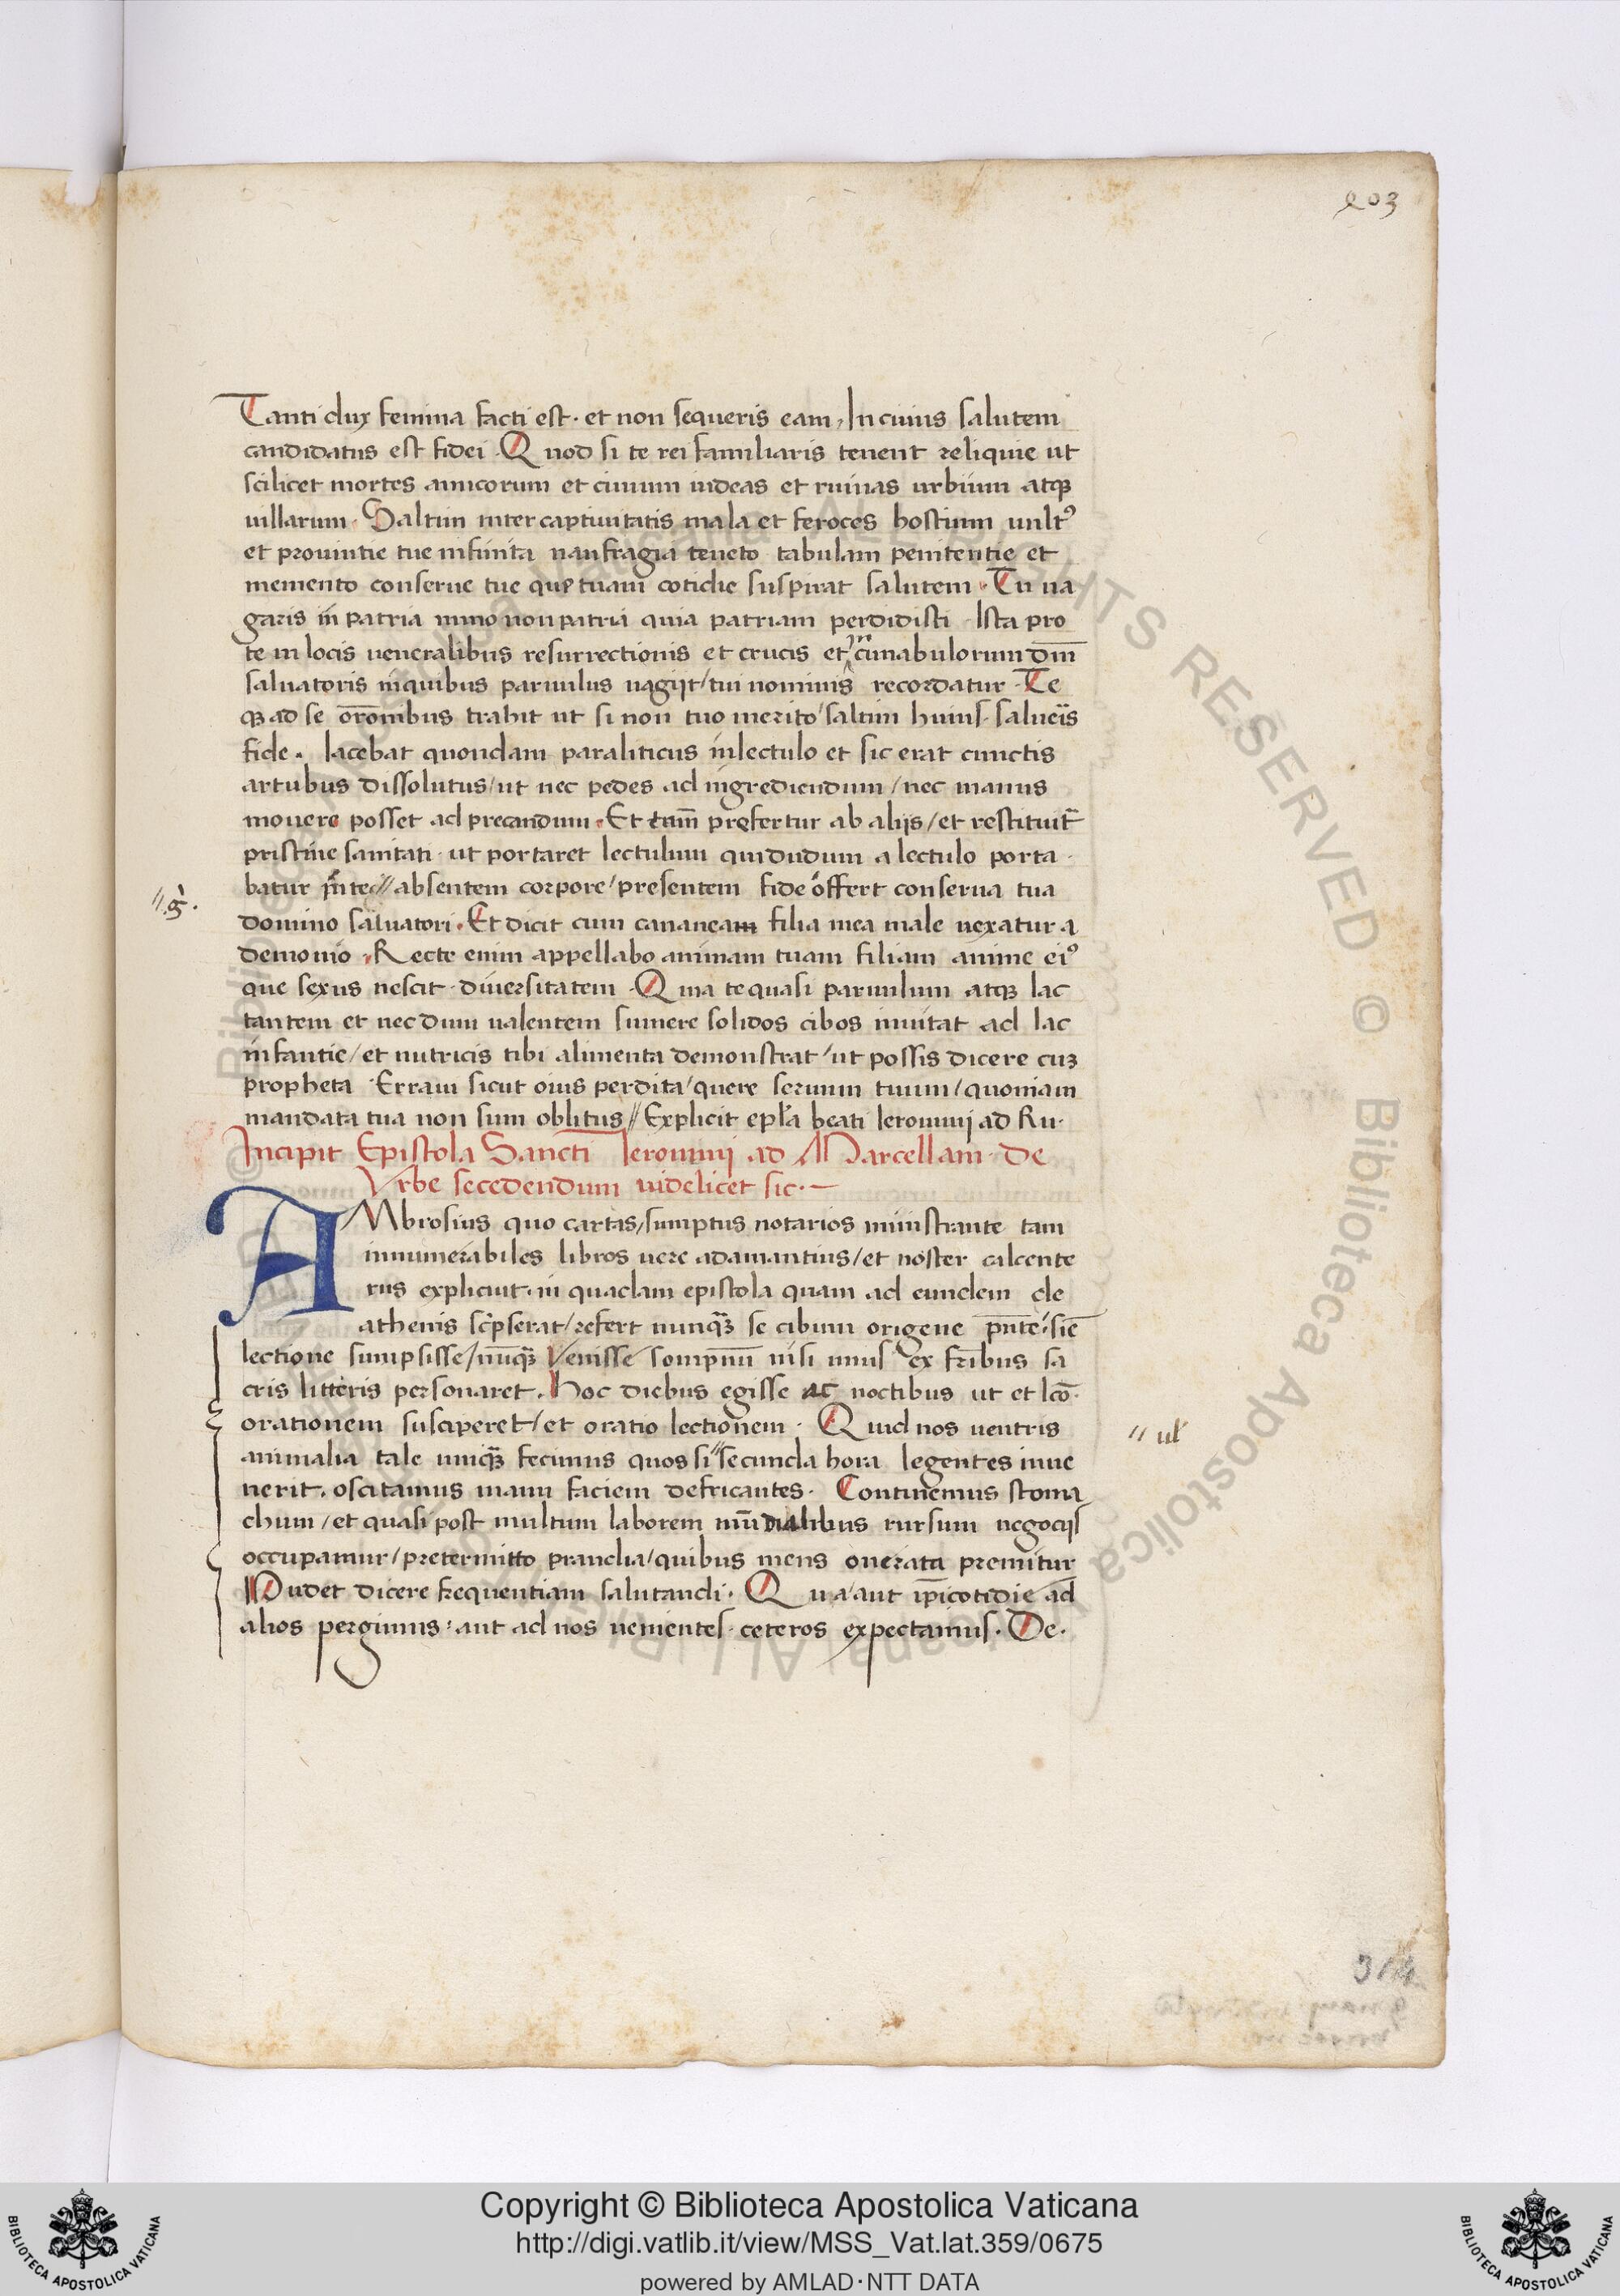 203
Tanti dux femina facti est. et non sequeris eam, In cuius salutem
candidatus est fidei. Quod si te rei familiaris tenent reliquie ut
scilicet mortes amicorum et ciuium uideas et ruinas urbium atqꝫ
uillarum. Saltim inter captiuitatis mala et feroces hostium uultꝰ
et prouintie tue infinita naufragia teneto tabulam penitentie et
memento conserue tue que tuam cotidie suspirat salutem. Tu ua
garis in patria immo non patria quia patriam perdidisti. Ista pro
te in locis ueneralibus resurrectionis et crucis et cunabulorum dn̄i
saluatoris in quibus paruulus uagijt/tui nominis recordatur. Te
qꝫ ad se or̄onibus trahit ut si non tuo merito/saltim huius salueris
fide. Iacebat quondam paraliticus in lectulo et sic erat cunctis
artubus dissolutus/ut nec pedes ad ingrediendum/nec manus
mouere posset ad precandum. Et tam̄ prefertur ab alijs/et restituit̄
pristine sanitati. ut portaret lectulum qui dudum a lectulo porta
batur // absentem corpore/presentem fide offert conserua tua
domino saluatori. Et dicit cum cananeam filia mea male uexatur a
demonio. Recte enim appellabo animam tuam filiam anime eiꝰ
que sexus nescit diuersitatem. Quia te quasi paruulum atqꝫ lac
tantem et nec dum ualentem sumere solidos cibos inuitat ad lac
infantie/et nutricis tibi alimenta demonstrat/ut possis dicere cuꝫ
propheta. Erraui sicut ouis perdita/quere seruum tuum/quoniam
mandata tua non sum oblitus// Explicit epl̄a beati Ieronimi ad Ru.
Incipit Epistola Sancti Ieronimi ad Marcellam. De
Vrbe secedendum uidelicet sic.
AMbrosius quo cartas/sumptus notarios ministrante tam
innumerabiles libros uere adamantius/et noster calcente
rus explicuit. in quadam epistola quam ad eundem de
athenis scripserat/refert nunqꝫ se cibum origene pn̄te/sine
lectione sumpsisse/nūqꝫ Venisse sompnū nisi unus ex fr̄ibus sa
cris litteris personaret. Hoc diebus egisse ac noctibus ut et lc̄o
orationem susciperet/et oratio lectionem. Quid nos uentris
// ul̄
animalia tale unqꝫ fecimus quos si // secunda hora legentes inue
nerit. oscitamus manu faciem defricantes. Continemus stoma
chum/et quasi post multum laborem mūdialibus rursum negocijs
occupamur/pretermitto prandia/quibus mens onerata premitur
Pudet dicere frequentiam salutandi. Qua aut ip̄i cotidie ad
alios pergimus. aut ad nos uenientes ceteros expectamus. De.
314
Copyright © Biblioteca Apostolica Vaticana
http://digi.vatlib.it/view/MSS_Vat.lat.359/0675
powered by AMLAD·NTT DATA
BIBLIOTECA APOSTOLICA VATICANA
BIBLIOTECA APOSTOLICA VATICANA